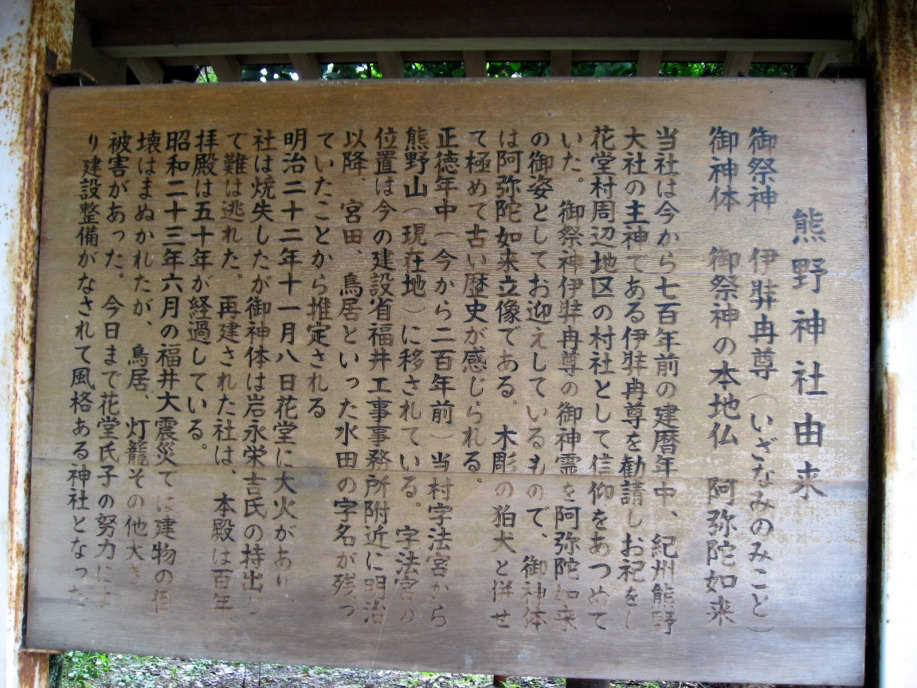 熊野神社由来
御祭神　伊弉冉尊（いざなみのみこと）
御神体　御祭神の本地仏　阿弥陀如来
当社は今から七百年前の建暦年中、紀州熊野
大社の主神である伊弉冉尊を勧請しお祀をし
花堂村周辺地区の村社として信仰をあつめて
いた。御祭神伊弉冉尊の御神霊を阿弥陀如来
の御姿としてお迎えしているもので、御神体
は阿弥陀如来立像である。木彫の狛犬と併せ
て極めて古い歴史が感じられる。
正徳年中（今から二百年前）当村字法宮から
熊野山（現在地）に移されている。字法宮の
位置は今の建設省福井工事事務所附近に明治
以降　宮田、鳥居といった水田の字名が残っ
ていたことから推定される
明治二十二年十一月八日花堂に大火があり
社は焼失したが御神体は岩永栄吉氏の持出し
で難は逃れた。再建された社は、本殿は百年
拝殿は五十年が経過している。
昭和二十三年六月の福井大震災では建物の倒
壊はまぬかれたが、鳥居、灯籠その他大きな
被害があった。今日まで花堂氏子の努力によ
り建設整備がなされて風格ある神社となった